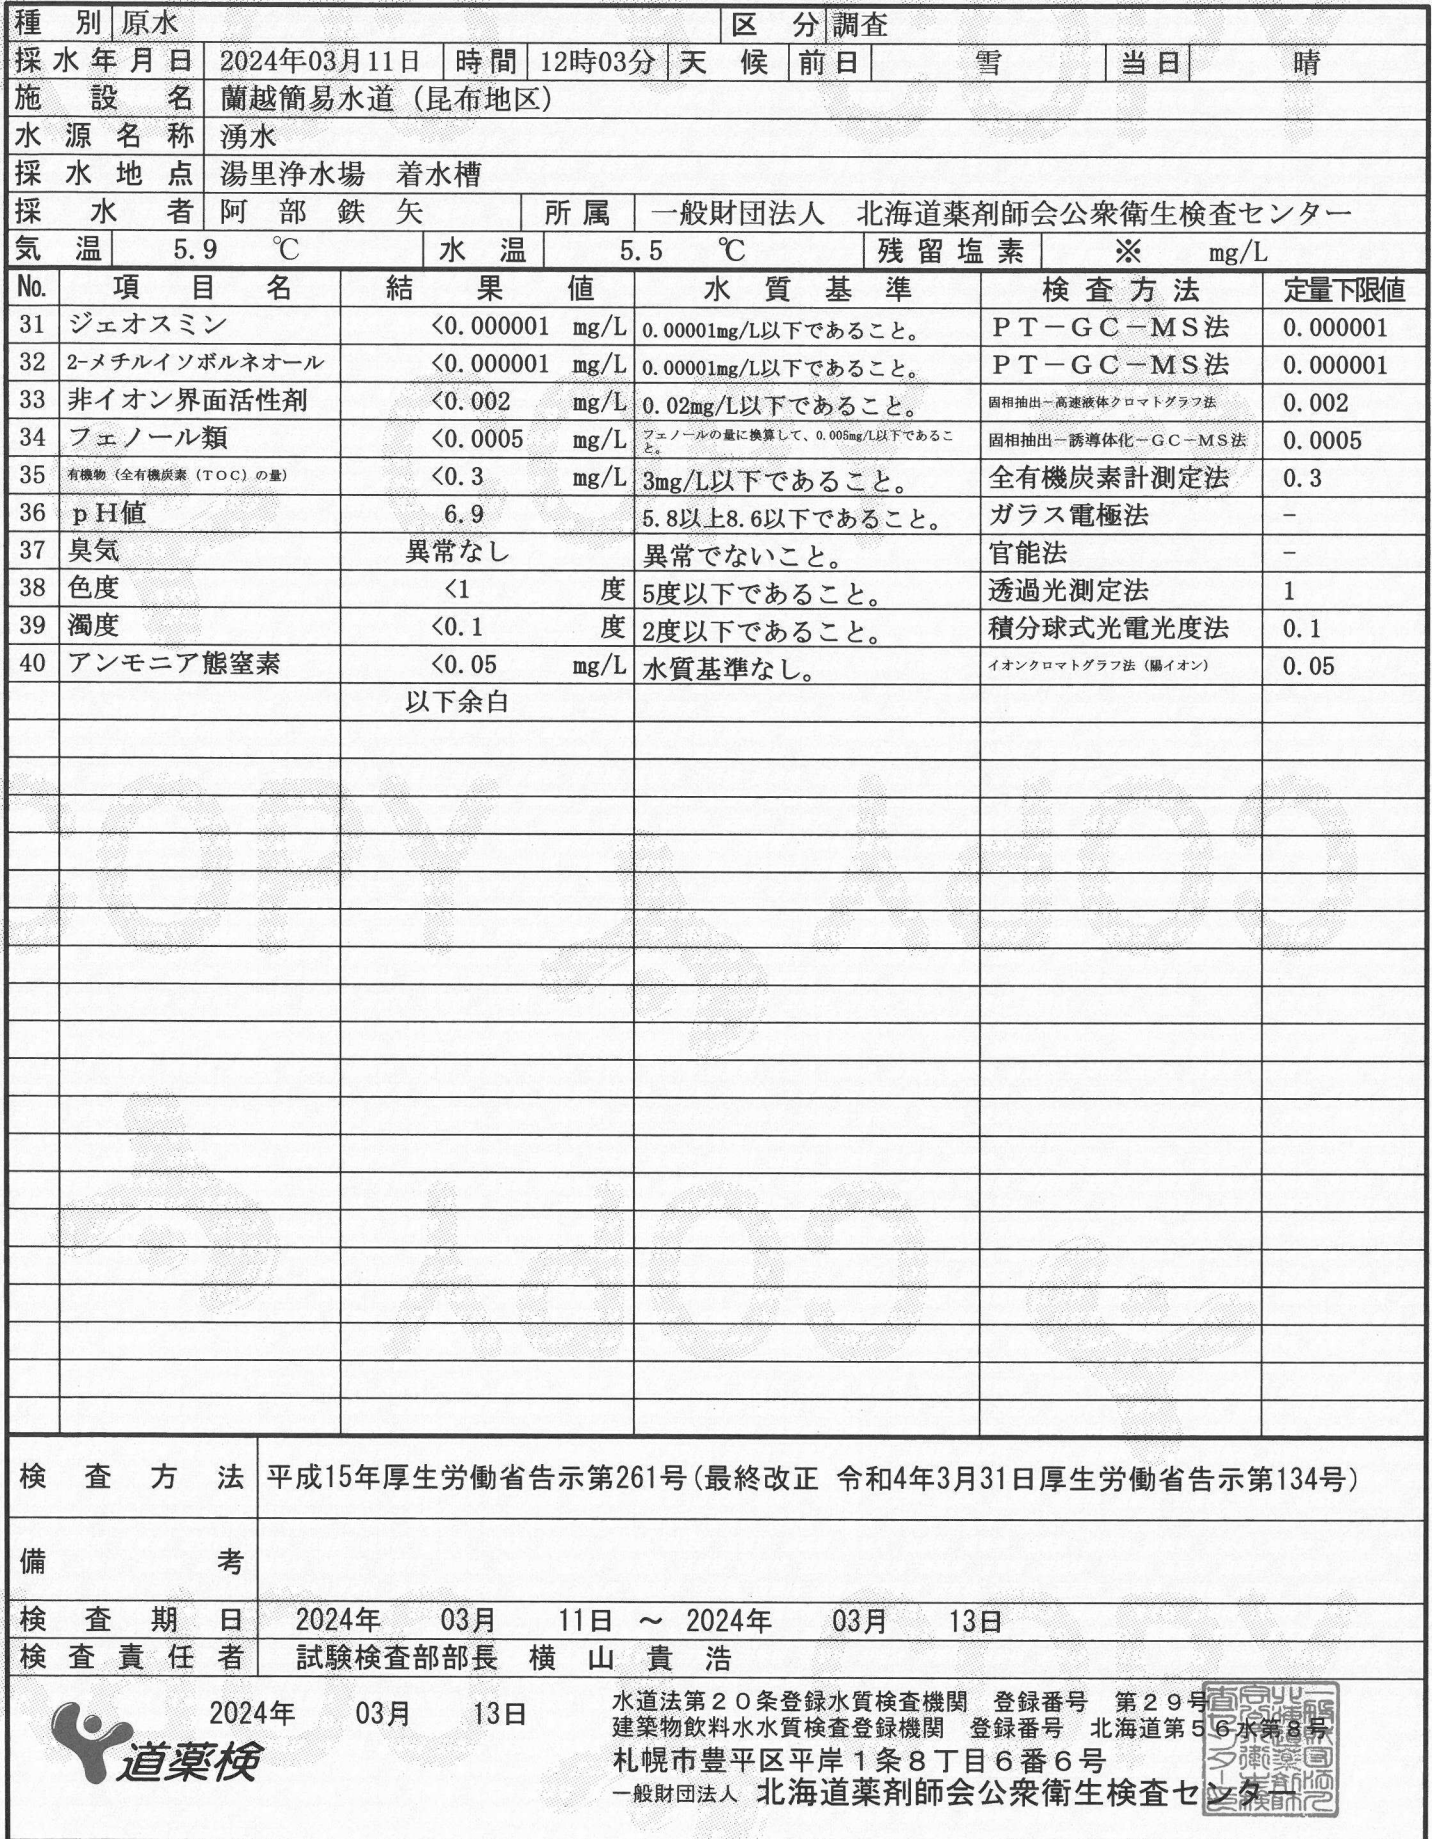 種 別 原水 区 分 調査
採水年月日 2024年03月11日 時間 12時03分 天 候 前日 雪 当日 晴
施 設 名 蘭越簡易水道（昆布地区）
水 源 名 称 湧水
採 水 地 点 湯里浄水場 着水槽
採 水 者 阿 部 鉄 矢 所 属 一般財団法人 北海道薬剤師会公衆衛生検査センター
気 温 5.9 ℃ 水 温 5.5 ℃ 残留塩素 ※ mg/L
No. 項 目 名 結 果 値 水 質 基 準 検 査 方 法 定量下限値
31 ジェオスミン <0.000001 mg/L 0.00001mg/L以下であること。 ＰＴ－ＧＣ－ＭＳ法 0.000001
32 2-メチルイソボルネオール <0.000001 mg/L 0.00001mg/L以下であること。 ＰＴ－ＧＣ－ＭＳ法 0.000001
33 非イオン界面活性剤 <0.002 mg/L 0.02mg/L以下であること。 固相抽出－高速液体クロマトグラフ法 0.002
34 フェノール類 <0.0005 mg/L フェノールの量に換算して、0.005mg/L以下であること。 固相抽出－誘導体化－ＧＣ－ＭＳ法 0.0005
35 有機物（全有機炭素（ＴＯＣ）の量） <0.3 mg/L 3mg/L以下であること。 全有機炭素計測定法 0.3
36 ｐＨ値 6.9 5.8以上8.6以下であること。 ガラス電極法 −
37 臭気 異常なし 異常でないこと。 官能法 −
38 色度 <1 度 5度以下であること。 透過光測定法 1
39 濁度 <0.1 度 2度以下であること。 積分球式光電光度法 0.1
40 アンモニア態窒素 <0.05 mg/L 水質基準なし。 イオンクロマトグラフ法（陽イオン） 0.05
以下余白
検 査 方 法 平成15年厚生労働省告示第261号(最終改正 令和4年3月31日厚生労働省告示第134号)
備 考
検 査 期 日 2024年 03月 11日 ～ 2024年 03月 13日
検 査 責 任 者 試験検査部部長 横 山 貴 浩
2024年 03月 13日
水道法第２０条登録水質検査機関 登録番号 第２９号
建築物飲料水水質検査登録機関 登録番号 北海道第５６水第８号
札幌市豊平区平岸１条８丁目６番６号
一般財団法人 北海道薬剤師会公衆衛生検査センター
道薬検
COPY
COPY
COPY